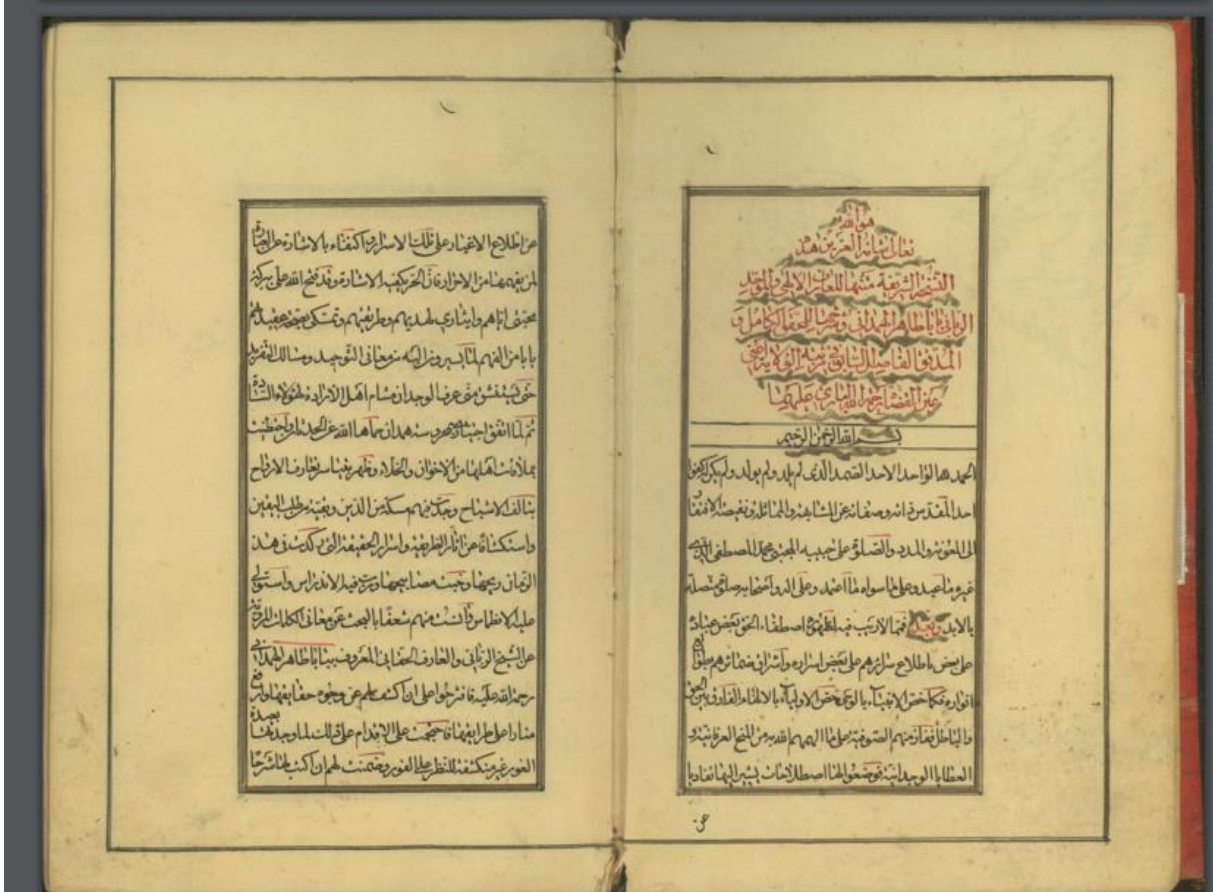 هو الله
تعالى شانه العزيز هذه
النسخة الشريفة متنها للعارف الالهي والموحد
الرباني بابا طاهر الهمداني وشرحها للمحقق الكامل و
المدقق الفاضل السابق في مرتبة الولاية اعنى
عين القضاة رحمة الله الباري عليهما
بسم الله الرحمن الرحيم
الحمد لله الواحد الاحد الصمد الذى لم يلد ولم يولد ولم يكن له كفوا
احد المقدس ذاته وصفاته عن المشابهة والمماثلة ونقيصة الافتقار
الى المعونة والمدد والصلوة على حبيبه المجتبى محمد المصطفى الذى
غيره ما عبد وعلى ما سواه ما اعتمد وعلى اله واصحابه صلوة متصلة
بالابد وبعد فمما لا ريب فيه اصطفاء الحق بعض عباده
على بعض باطلاع سرائرهم على بعض اسراره واشراق ضمائرهم
انواره فكما خص الانبياء بالوحى خص الاولياء بالالهام الفارق بين الحق
والباطل منهم الصوفية على ما الهمهم الله به من المنح العرفانية و
العطايا الوجدانية فوضعوا لها اصطلاحات يشير اليها تفاديا
عن
عن اطلاع الاغيار على تلك الاسرار واكتفاء بالاشارة عن العبارة
لمن يفهمها من الاحرار فان الحر يكفيه الاشارة وقد فتح الله على ببركة
محبتى اياهم وايثارى لهديهم وطريقتهم وتمسكى بصحة عقيدتهم
بابا من الفهم لما يسيرون اليه من معانى التوحيد ومسالك التفريد
حتى عرف الوجدان مشام اهل الارادة لهؤلاء السادة
ثم لما اتفق اجتيازى بمحروسة همدان حماها الله عن الحدثان واحتظيت
بملاقات اهلها من الاخوان والخلاء وظهر بيننا سر تعارف الارواح
بتالف الاشباح وجدت فيهم مسكة من الدين وبقية من طلب اليقين
واستكشافا عن اثار الطريقة واسرار الحقيقة التى ركدت فى هذا
الزمان ريحها وخبت مصابيحها ودب فيه الاندراس واستولى
عليه الانطماس وانست منهم شعفا بالبحث عن معانى الكلمات المروية
عن الشيخ الربانى والعارف الحقانى المعروف ببابا طاهر الهمدانى
رحمة الله عليه فاقترحوا على ان اكشف لهم عن وجوه حقايقها وارفع
منارا على طرايقها فاحجمت على الاقدام على ذلك لما وجدتها بعيدة
الغور غير منكشفة للنظر على الفور وضمنت لهم ان اكتب لها شرحا